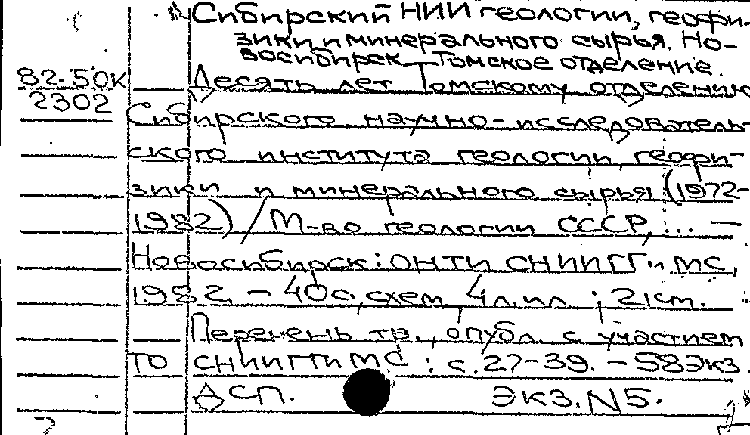 Сибирский НИИ геологии, геофи-
зики и минерального сырья. Но-
восибирск. Томское отделение.
82-50К Десять лет Томскому отделению
2302 Сибирского научно-исследователь-
ского института геологии, геофи-
зики и минерального сырья (1972-
1982) / М-во геологии СССР, ... —
Новосибирск: ОНТИ СНИИГГиМС,
1982. - 40 с., схем, 4 л. ил.; 21 см.
Перечень тр., опубл. с участием
ТО СНИИГГиМС: с. 27-39. - 58 экз.
ДСП. ЭКЗ. N5.